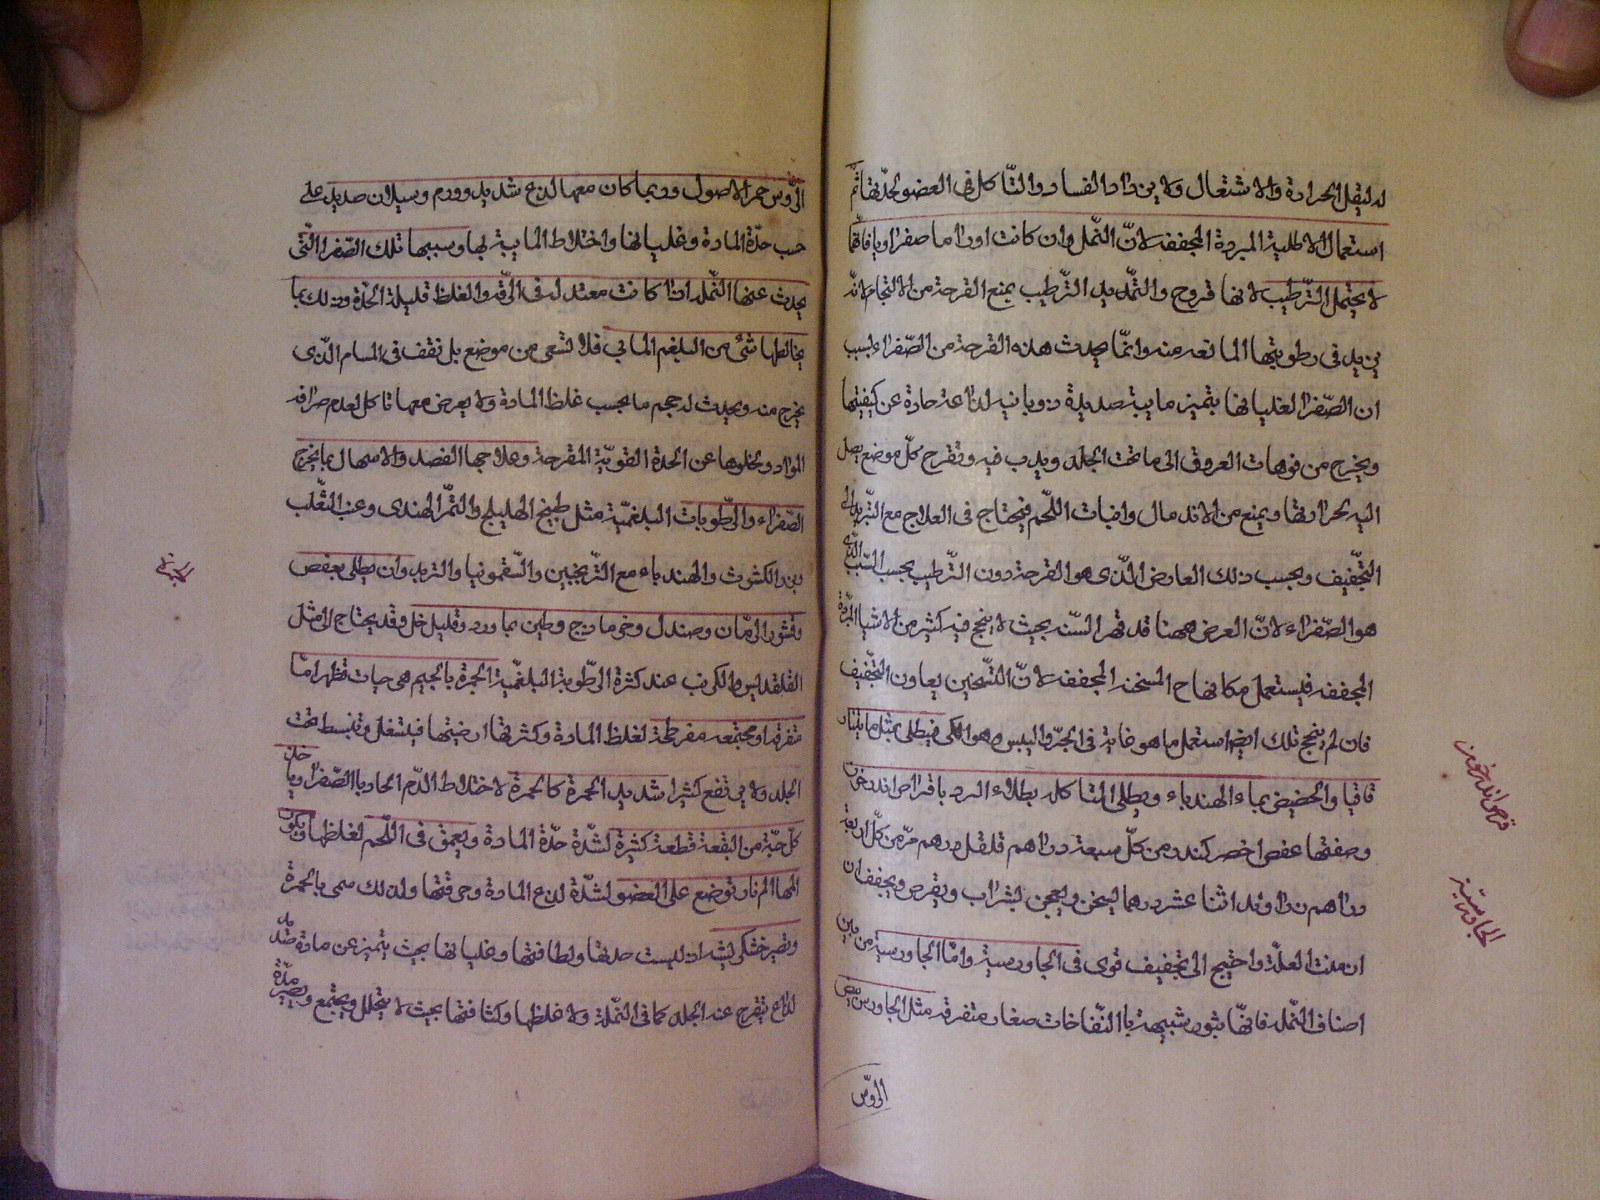 له ليقل الحرارة والاشتعال ولا يزداد الفساد والتّاكل فى العضو لحدّتها ثمّ
استعمال الاطلية المبردة المجففة لانّ النّمل وان كانت اوراما صفراوية فانّها
لا يحتمل التّرطيب لانها قروح والتّمديد التّرطيب يمنع القرحة من الالتحام لانّه
يزيد فى رطوبتها المانعة منه وانّما يحدث هذه القرحة من الصّفراء بسبب
ان الصّفرا لغليانها يتميز مايية صديدية ذوبانية لذاعة حادة عن كيفيتها
ويخرج من فوهات العروق الى ما تحت الجلد ويدب فيه وتقرح كلّ موضع يصل
اليه بحرارتها ويمنع من الاندمال وانبات اللّحم فيحتاج فى العلاج مع التّبريد الى
التجّفيف وبحسب ذلك العارض الّذى هو القرحة دون التّرطيب بحسب السّبب الّذى
هو الصّفراء لانّ العرض ههنا قد قهر السّبب بحيث لا ينجح فيه كثير من الاشيا المبرّدة
المجففة فليستعمل مكانها ح المسخنة المجففة لانّ التّسخين يعاون التجّفيف
فان لم ينجح تلك ايضا استعمل ما هو غاية فى الحرّ واليبس وهو الكى فيطلى بمثل ماميثا و
قاقيا والحضيض بماء الهندباء ويطلى المتاكلة بطلاء البرد باقراص اندرخون
وصفتها عفص اخضر كندر من كلّ سبعة دراهم قلقل درهم مرّ من كلّ اربعة
دراهم زراوند اثنا عشر درهما ليسخن ويعجن بشراب ويقرص ويجفف ان
ازمنت العلّة واحتيج الى تجفيف قوى فى الجاورسية وامّا الجاورسية من بين
اصناف النّملة فانّها بثور شبيهة بالنّفاخات صغار متفرقة مثل الجاورس بيض
الرّوس
قرص اندرخون
الجاورسية
الرّوس حمر الاصول وربما كان معها لذع شديد وورم وسيلان صديد على
حسب حدّة المادة وغليانها واختلاط المايية بها وسببها تلك الصّفرا الّتى
يحدث عنها النّملة اذا كانت معتدلة فى الرّقة والغلظ قليلة الحدّة وذلك بما
يخالطها شئ من البلغم المائي فلا تسعى من موضع بل تقف فى المسام الّذى
يخرج منه ويحدث له حجم ما بحسب غلظ المادة ولا يعرض معها تاكل لعدم صرافة
الموّاد وخلوها عن الحدة القويّة المقرحة وعلاجها الفصد والاسهال بما يخرج
الصّفراء والرّطوبات البلغميّة مثل طبيخ الهليلج والتّمر الهندى وعنب الثّعلب
وبزر الكشوث والهندباء مع التّرنجبين والسّقمونيا والتربد وان يطلى بعفص
وقشور الرمّان وصندل وخزمازج وطين بماورد وقليل خل وقد يحتاج الى مثل
القلقديس والكرنب عند كثرة الرّطوبة البلغميّة الجمرة بالجيم هى حبات تظهر امّا
متفرقة او مجتمعة مفرطحة لغلظ المادة وكثرتها ارضيتها فيلتغل وتنبسط تحت
الجلد ولا يرتفع كثيرا شديد الحمرة كالجمرة لاختلاط الدّم الحاد باالصّفرا وياخذ
كلّ حبّة من البقعة قطعة كثيرة لشدّة حدّة المادة ويعمق فى اللّحم لغلظها ويكون
المها الم نار توضع على العضو لشدّة لذع المادة وحرقتها ولذلك سمى بالجمرة
وتصير خشكريشة اذ ليست حدتها ولطافتها وغليانها بحيث يتميز عن مادة صديد
لذاع يتقرح عنه الجلد كما فى النّملة ولا غلظها وكثافتها بحيث لا يتحلل ويجتمع ويصير مدّة
الجمرة